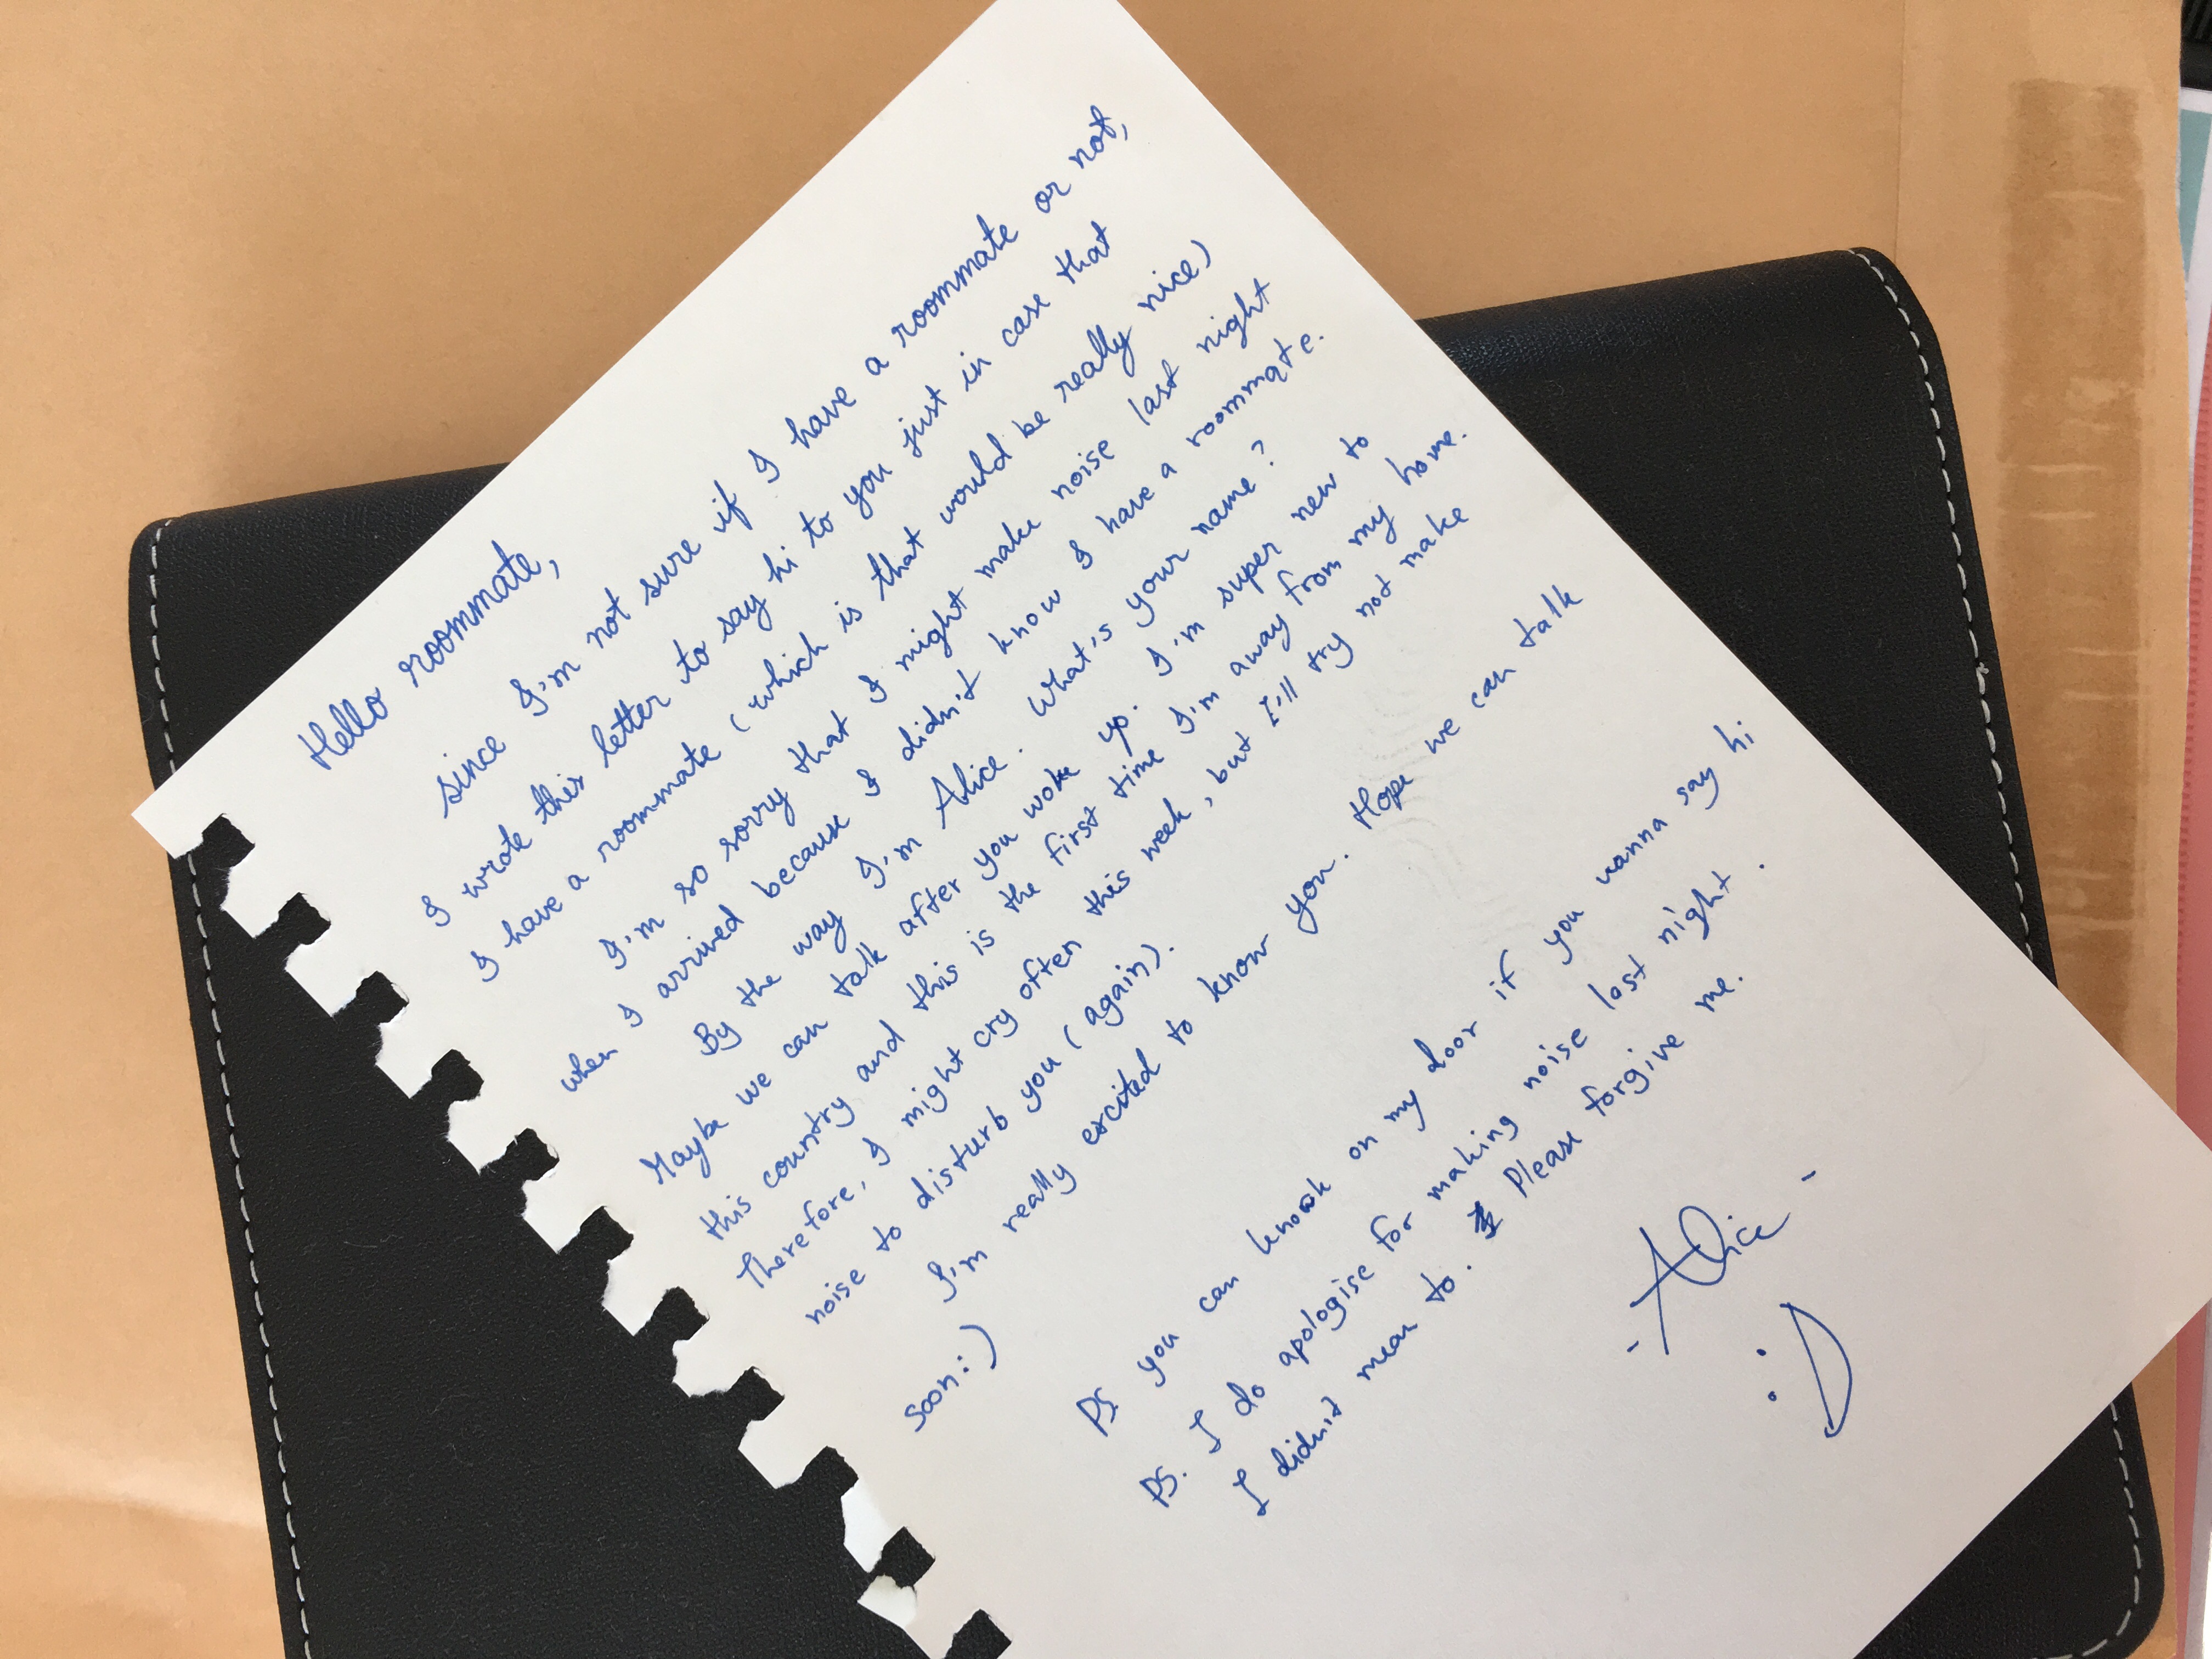 Hello roommate,
Since I'm not sure if I have a roommate or not,
I wrote this letter to say hi to you just in case that
I have a roommate (which is that would be really nice)
I'm so sorry that I might make noise last night
when I arrived because I didn't know I have a roommate.
By the way I'm Alice. What's your name?
Maybe we can talk after you woke up. I'm super new to
this country and this is the first time I'm away from my home.
Therefore, I might cry often this week, but I'll try not make
noise to disturb you (again).
I'm really excited to know you. Hope we can talk
soon:)
PS you can knock on my door if you wanna say hi
PS. I do apologise for making noise last night.
I didn't mean to. Please forgive me.
- Alice -
:D